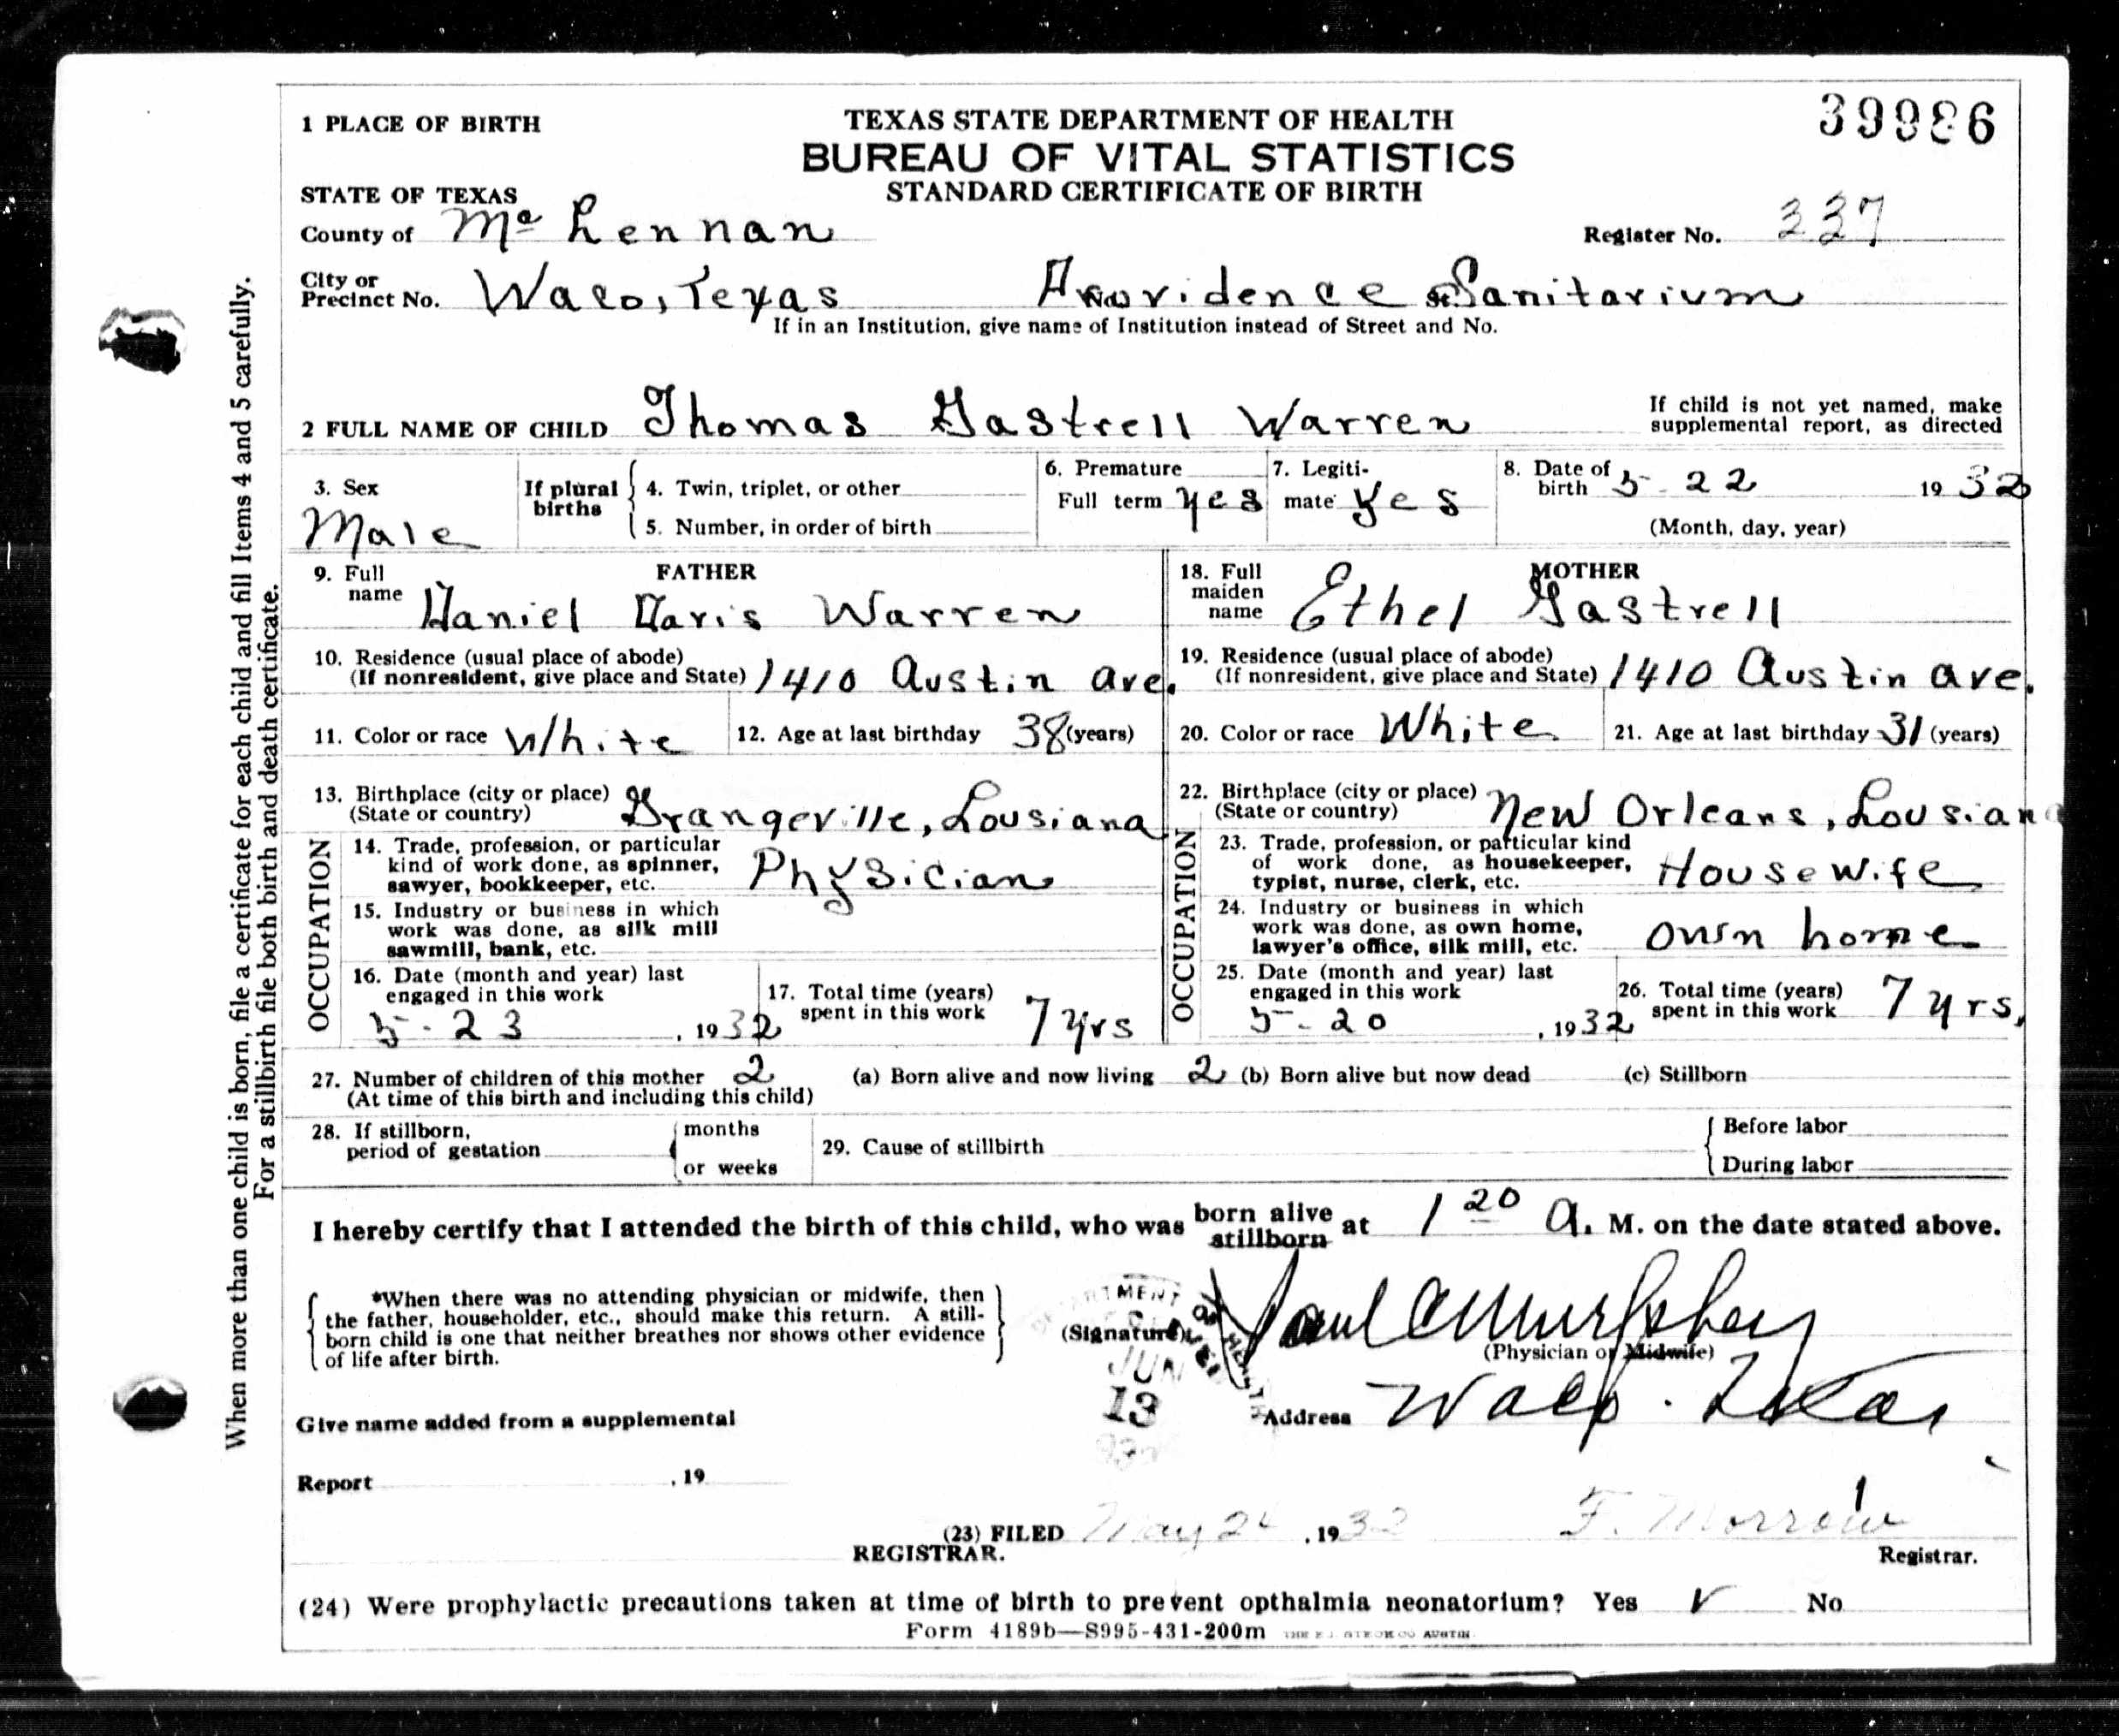 39986
1 PLACE OF BIRTH
TEXAS STATE DEPARTMENT OF HEALTH
BUREAU OF VITAL STATISTICS
STANDARD CERTIFICATE OF BIRTH
STATE OF TEXAS
County of Mc Lennan
Register No. 337
City or Precinct No. Waco, Texas Providence Sanitarium
If in an Institution, give name of Institution instead of Street and No.
2 FULL NAME OF CHILD Thomas Gastrell Warren
If child is not yet named, make
supplemental report, as directed
3. Sex Male
If plural births
4. Twin, triplet, or other
5. Number, in order of birth
6. Premature
Full term yes
7. Legiti-
mate yes
8. Date of birth 5-22 1932
(Month, day, year)
FATHER
9. Full name Daniel Davis Warren
10. Residence (usual place of abode)
(If nonresident, give place and State) 1410 Austin ave.
11. Color or race White
12. Age at last birthday 38 (years)
13. Birthplace (city or place)
(State or country) Grangeville, Lousiana
OCCUPATION
14. Trade, profession, or particular
kind of work done, as spinner,
sawyer, bookkeeper, etc. Physician
15. Industry or business in which
work was done, as silk mill
sawmill, bank, etc.
16. Date (month and year) last
engaged in this work
5-23, 1932
17. Total time (years)
spent in this work 7 yrs
MOTHER
18. Full maiden name Ethel Gastrell
19. Residence (usual place of abode)
(If nonresident, give place and State) 1410 Austin ave.
20. Color or race White
21. Age at last birthday 31 (years)
22. Birthplace (city or place)
(State or country) New Orleans, Lousiana
OCCUPATION
23. Trade, profession, or particular kind
of work done, as housekeeper,
typist, nurse, clerk, etc. Housewife
24. Industry or business in which
work was done, as own home,
lawyer's office, silk mill, etc. own home
25. Date (month and year) last
engaged in this work
5-20, 1932
26. Total time (years)
spent in this work 7 yrs,
27. Number of children of this mother 2 (a) Born alive and now living 2 (b) Born alive but now dead (c) Stillborn
(At time of this birth and including this child)
28. If stillborn,
period of gestation
months
or weeks
29. Cause of stillbirth
Before labor
During labor
I hereby certify that I attended the birth of this child, who was born alive stillborn at 1 20 a. M. on the date stated above.
*When there was no attending physician or midwife, then
the father, householder, etc., should make this return. A still-
born child is one that neither breathes nor shows other evidence
of life after birth.
(Signature) Paul C Murphey
(Physician or Midwife)
JUN
13
Address Waco. Texas
Give name added from a supplemental
Report , 19
(23) FILED May , 1932 F. Morrow
REGISTRAR.
Registrar.
(24) Were prophylactic precautions taken at time of birth to prevent opthalmia neonatorium? Yes ✓ No
Form 4189b—S995-431-200m
When more than one child is born, file a certificate for each child and fill Items 4 and 5 carefully.
For a stillbirth file both birth and death certificate.